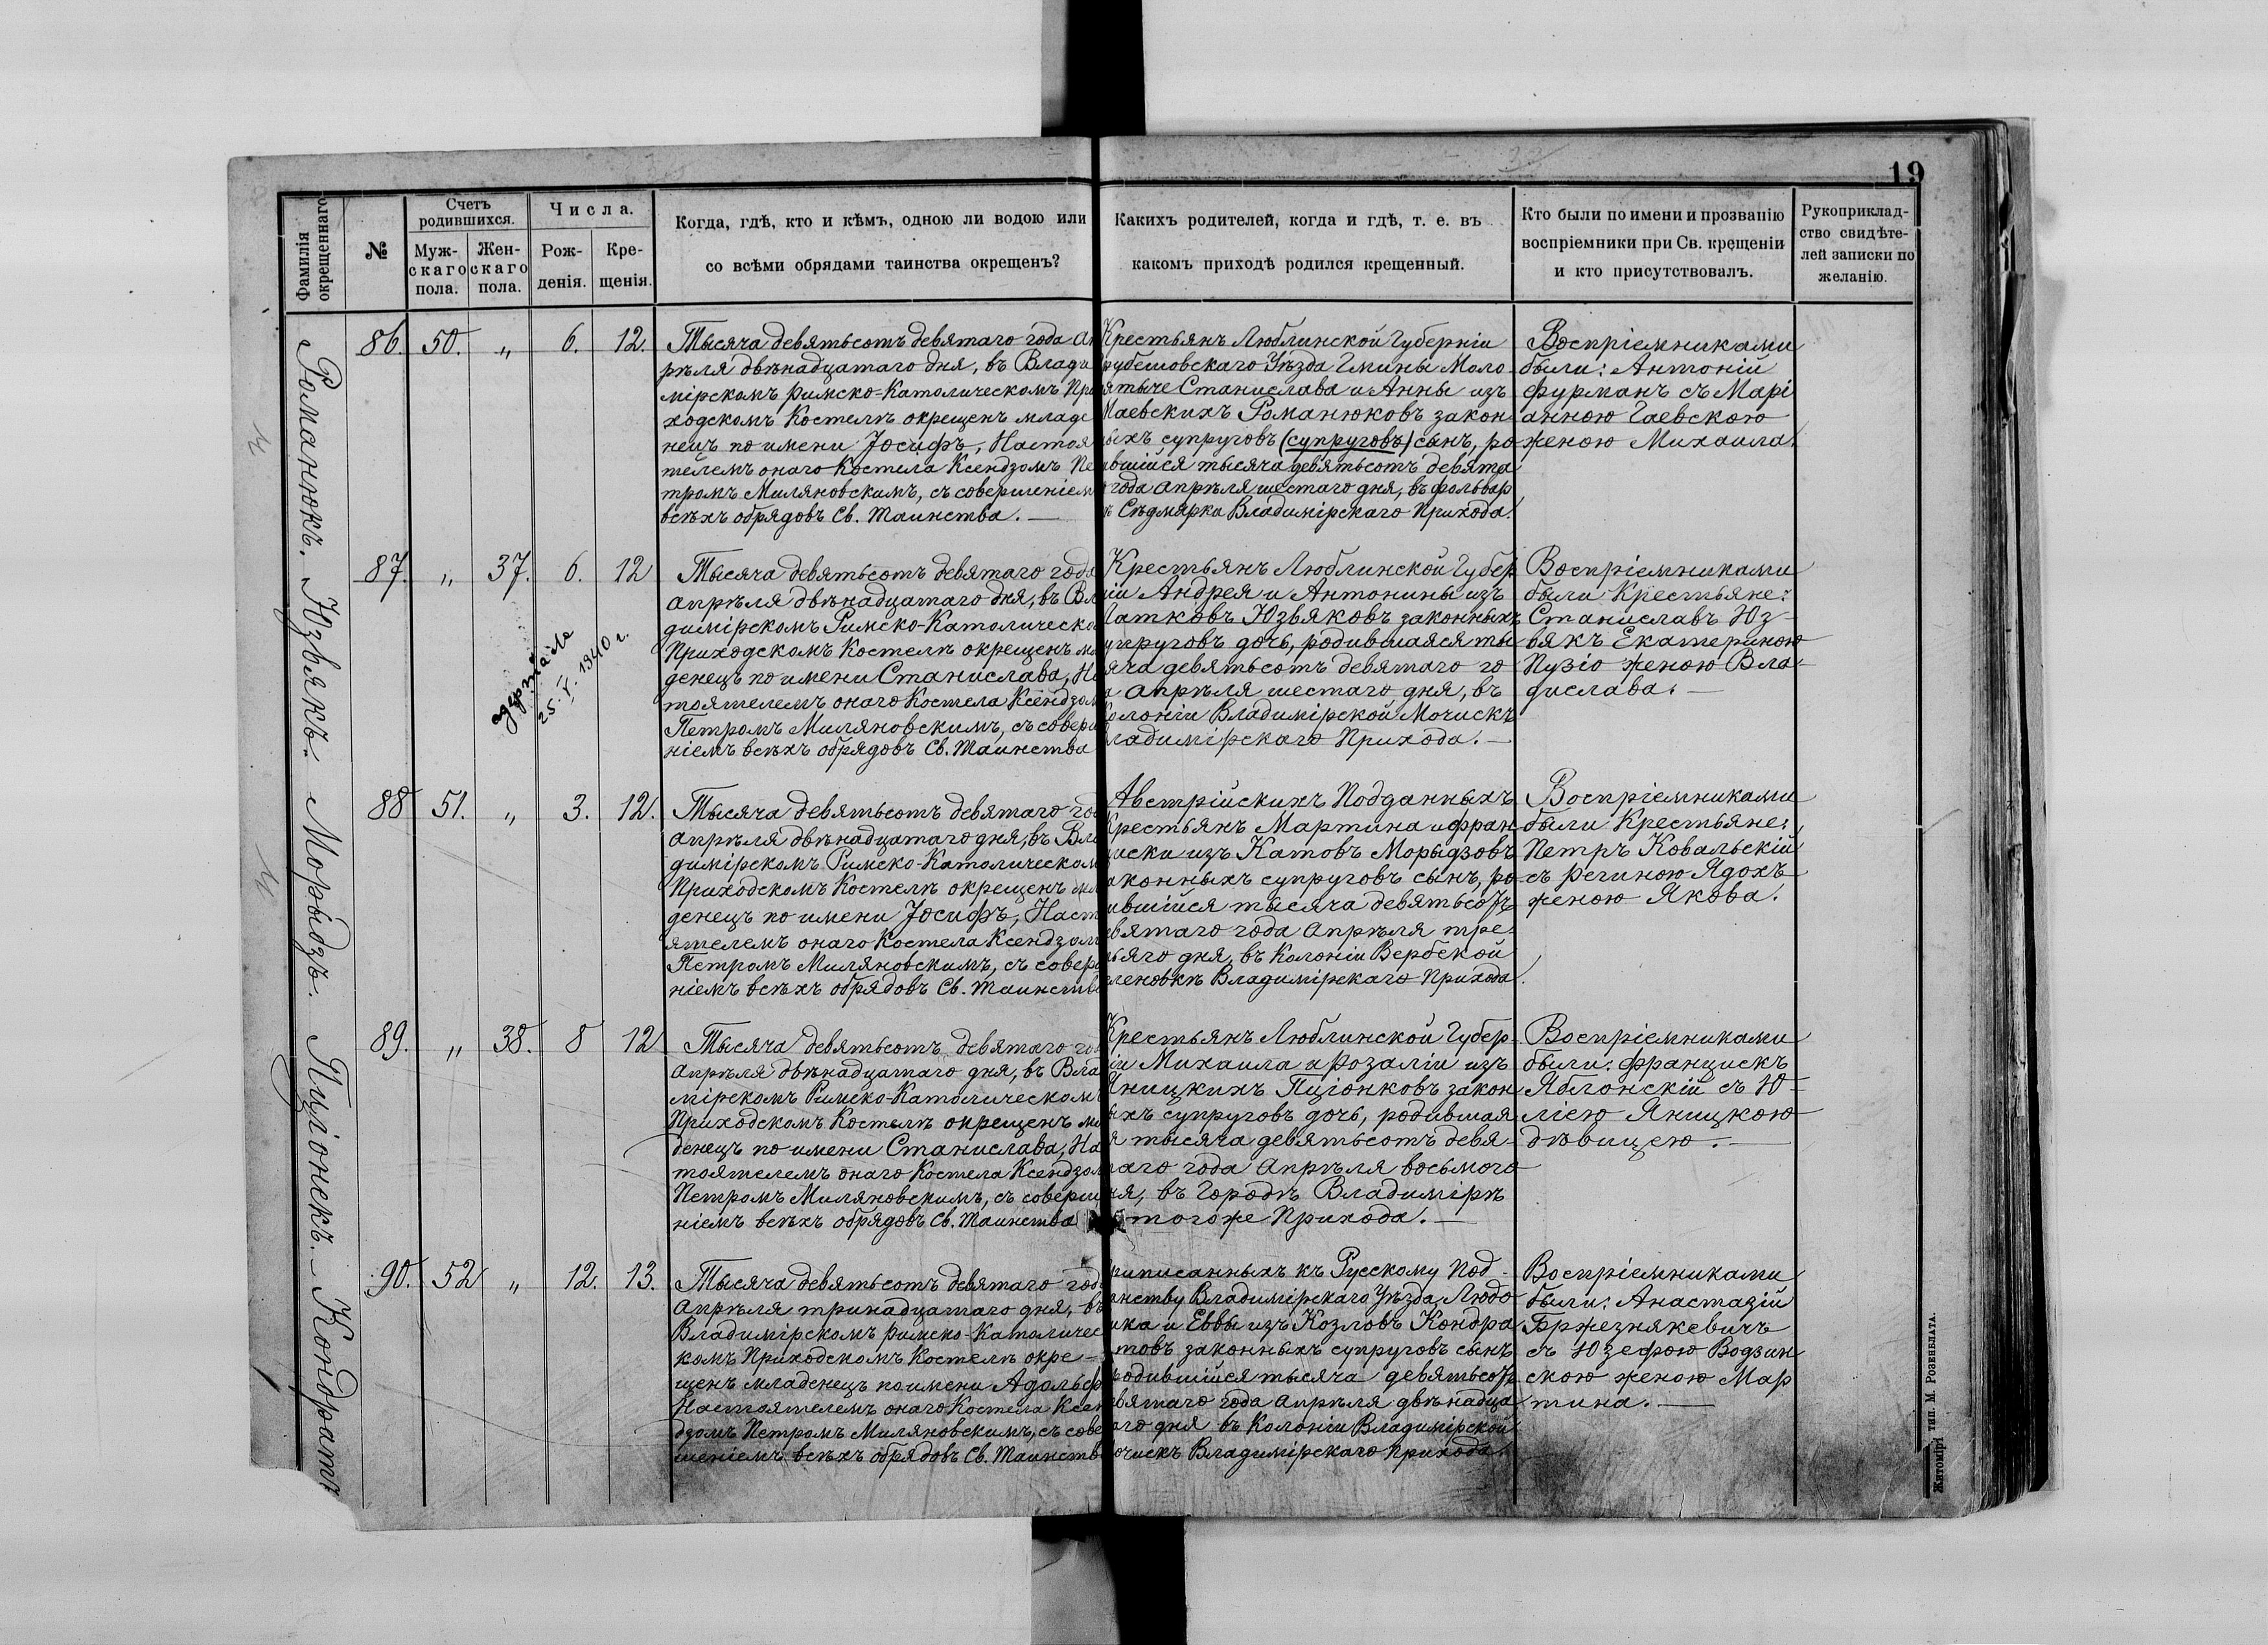 19
Фамилія окрещеннаго.
№
Счетъ родившихся.
Мужскаго пола.
Женскаго пола.
Числа.
Рожденія.
Крещенія.
Когда, гдѣ, кто и кѣмъ, одною ли водою или
со всѣми обрядами таинства окрещенъ?
Какихъ родителей, когда и гдѣ, т. е. въ
какомъ приходѣ родился крещенный.
Кто были по имени и прозванію
воспріемники при Св. крещеніи
и кто присутствовалъ.
Рукоприклад-
ство свидѣте-
лей записки по
желанію.
Романюкъ.
86. 50. „ 6. 12.
Тысяча девятьсотъ девятаго года Ап
рѣля двѣнадцатаго дня, въ Влади
мірскомъ Римско-Католическомъ При
ходскомъ Костелѣ окрещенъ младе
нецъ по имени Іосифъ, Настоя
телемъ онаго Костела Ксендзомъ Пе
тромъ Миляновскимъ, съ совершеніем
всѣхъ обрядовъ Св. Таинства. —
Крестьянъ Люблинской Губерніи
рубешовскаго Уѣзда Гмины Моло-
ятыче Станислава и Анны изъ
Маевскихъ Романюковъ закон
ыхъ супруговъ (супруговъ) сынъ, ро
ившійся тысяча девятьсотъ девята
года Апрѣля шестаго дня, въ фольвар
ѣ Съдмярки Владимірскаго Прихода.
Воспріемниками
были: Антоній
Фурманъ съ Марі
анною Гаевскою
женою Михаила.
Юзвякъ.
87. „ 37. 6. 12
25. I. 1940 г.
Тысяча девятьсотъ девятаго года
Апрѣля двѣнадцатаго дня, въ Вла
димірскомъ Римско-Католическо
Приходскомъ Костелѣ окрещенъ мл
денецъ по имени Станислава, На
тоятелемъ онаго Костела Ксендзом
Петромъ Миляновскимъ, съ соверш
ніемъ всѣхъ обрядовъ Св. Таинства
Крестьянъ Люблинской Губер
ніи Андрея и Антонины изъ
Латковъ Юзьяковъ законныхъ
супруговъ дочь, родившаяся ты
яча девятьсотъ девятаго го
а Апрѣля шестаго дня, въ
Колоніи Владимірской Мочискъ
Владимірскаго Прихода. —
Воспріемниками
были Крестьяне:
Станиславъ Юз-
вякъ Екатериною
Пузіо женою Вла-
дислава. —
Морыдзъ.
88 51. „ 3. 12.
Тысяча девятьсотъ девятаго год
Апрѣля двѣнадцатаго дня, въ Вла
димірскомъ Римско-Католическом
Приходскомъ Костелѣ окрещенъ мл
денецъ по имени Іосифъ, Наст
ятелемъ онаго Костела Ксендзом
Петромъ Миляновскимъ, съ совер
ніемъ всѣхъ обрядовъ Св. Таинств
Австрійскихъ Подданныхъ
Крестьянъ Мартина и Фран
циски изъ Катовъ Морыдзовъ
аконныхъ супруговъ сынъ, ро
ившійся тысяча девятьсотъ
евятаго года Апрѣля тре-
тьяго дня, въ Колоніи Вербской
леновкѣ Владимірскаго Прихода.
Воспріемниками
были Крестьяне:
Петръ Ковальскій
съ Региною Ядохъ
женою Якова.
Пціонекъ.
89. „ 38. 8 12
Тысяча девятьсотъ девятаго го
Апрѣля двѣнадцатаго дня, въ Вла
мірскомъ Римско-Католическом
Приходскомъ Костелѣ окрещенъ мл
денецъ по имени Станислава, На
тоятелемъ онаго Костела Ксендзо
Петромъ Миляновскимъ, съ соверш
ніемъ всѣхъ обрядовъ Св. Таинства
Крестьянъ Люблинской Губер-
іи Михаила и Розаліи изъ
Яницкихъ Пціонковъ закон
ыхъ супруговъ дочь, родившая
я тысяча девятьсотъ девя-
таго года Апрѣля восьмого
ня, въ Городѣ Владимірѣ
тогоже Прихода. —
Воспріемниками
были: Францискъ
Яблонскій съ Ю-
ліею Яницкою
дѣвицею. —
Кондратъ
90. 52 „ 12. 13.
Тысяча девятьсотъ девятаго год
Апрѣля тринадцатаго дня, въ
Владимірскомъ Римско-Католичес
комъ Приходскомъ Костелѣ окре-
щенъ младенецъ по имени Адольф
Настоятелемъ онаго Костела Ксен
дзомъ Петромъ Миляновскимъ, съ сове
шеніемъ всѣхъ обрядовъ Св. Таинств
риписанныхъ къ Русскому Под-
анству Владимірскаго Уѣзда, Людо
ика и Еввы изъ Козловъ Кондра
товъ законныхъ супруговъ сынъ
родившійся тысяча девятьсотъ
евятаго года Апрѣля двѣнадца
аго дня въ Колоніи Владимірской
очискъ Владимірскаго Прихода.
Воспріемниками
были: Анастазій
Бржезнякевичъ
съ Юзефою Водзин
скою женою Мар
тина. —
Житоміръ тип. М. Розенблата.